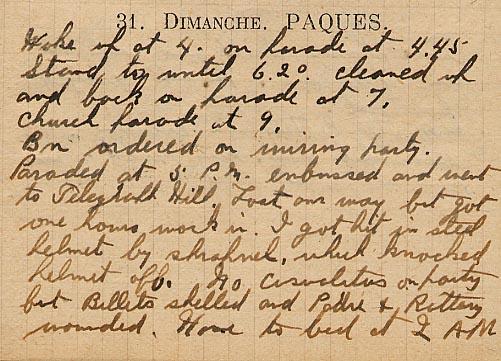 31. DIMANCHE. PAQUES.
Woke up at 4. on parade at 4.45
Stand to until 6.20. cleaned up
and back on parade at 7.
Church parade at 9.
Bn ordered on mining party.
Paraded at 5. P.M. embussed and went
to Telegraph Hill. Lost our way but got
one hours work in. I got hit in steel
helmet by shrapnel, which knocked
helmet off. No casualties on party
but Billets shelled and Padre &
wounded. Home to bed at 2 AM